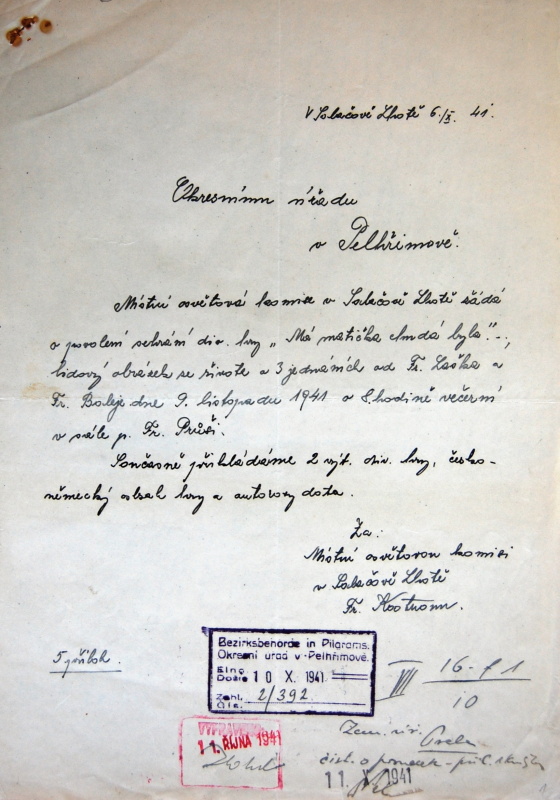 V Salačově Lhotě 6./X. 41.
Okresnímu úřadu
v Pelhřimově.
Místní osvětová komise v Salačově Lhotě žádá
o povolení sehrání div. hry „Má matička chudá byla"
lidový obrázek ze života o 3 jednáních od Fr. Laška a
Fr. Baleje dne 9. listopadu 1941 o 8 hodině večerní
v sále p. Fr. Průši.
Současně přikládáme 2 výt. div. hry, česko-
německý obsah hry a autorovy data.
Za:
Místní osvětovou komisi
v Salačově Lhotě
Fr.
5 příloh.
Bezirksbehörde in Pilgrams.
Okresní úřad v Pelhřimově.
Eing.
Došlo 10 X. 1941
Zahl.
Čís. 2/392
VII 16-81
10
VYPRAVENO
11. ŘÍJNA 1941
11 X 1941